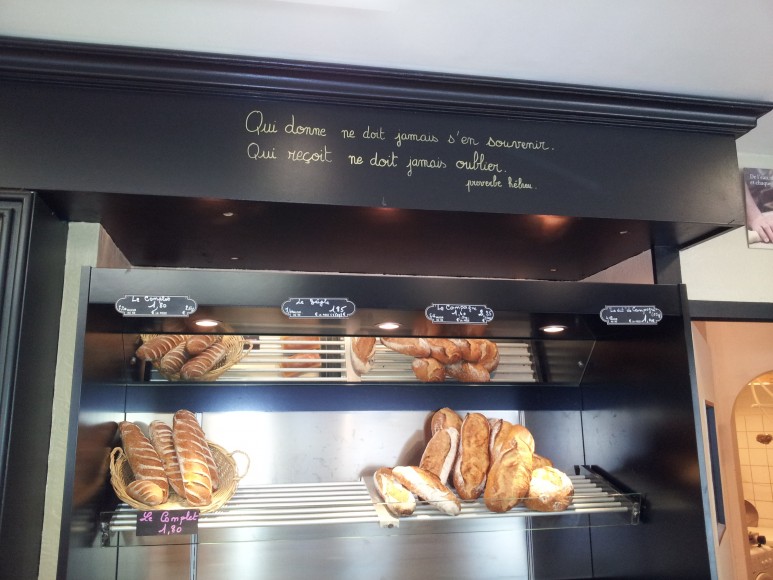 Qui donne ne doit jamais s'en souvenir.
Qui reçoit ne doit jamais oublier.
proverbe hébreu.
Le Complet
1,80
Le Seigle
1,85
Le Campagne
1,60
Le Complet
1,80